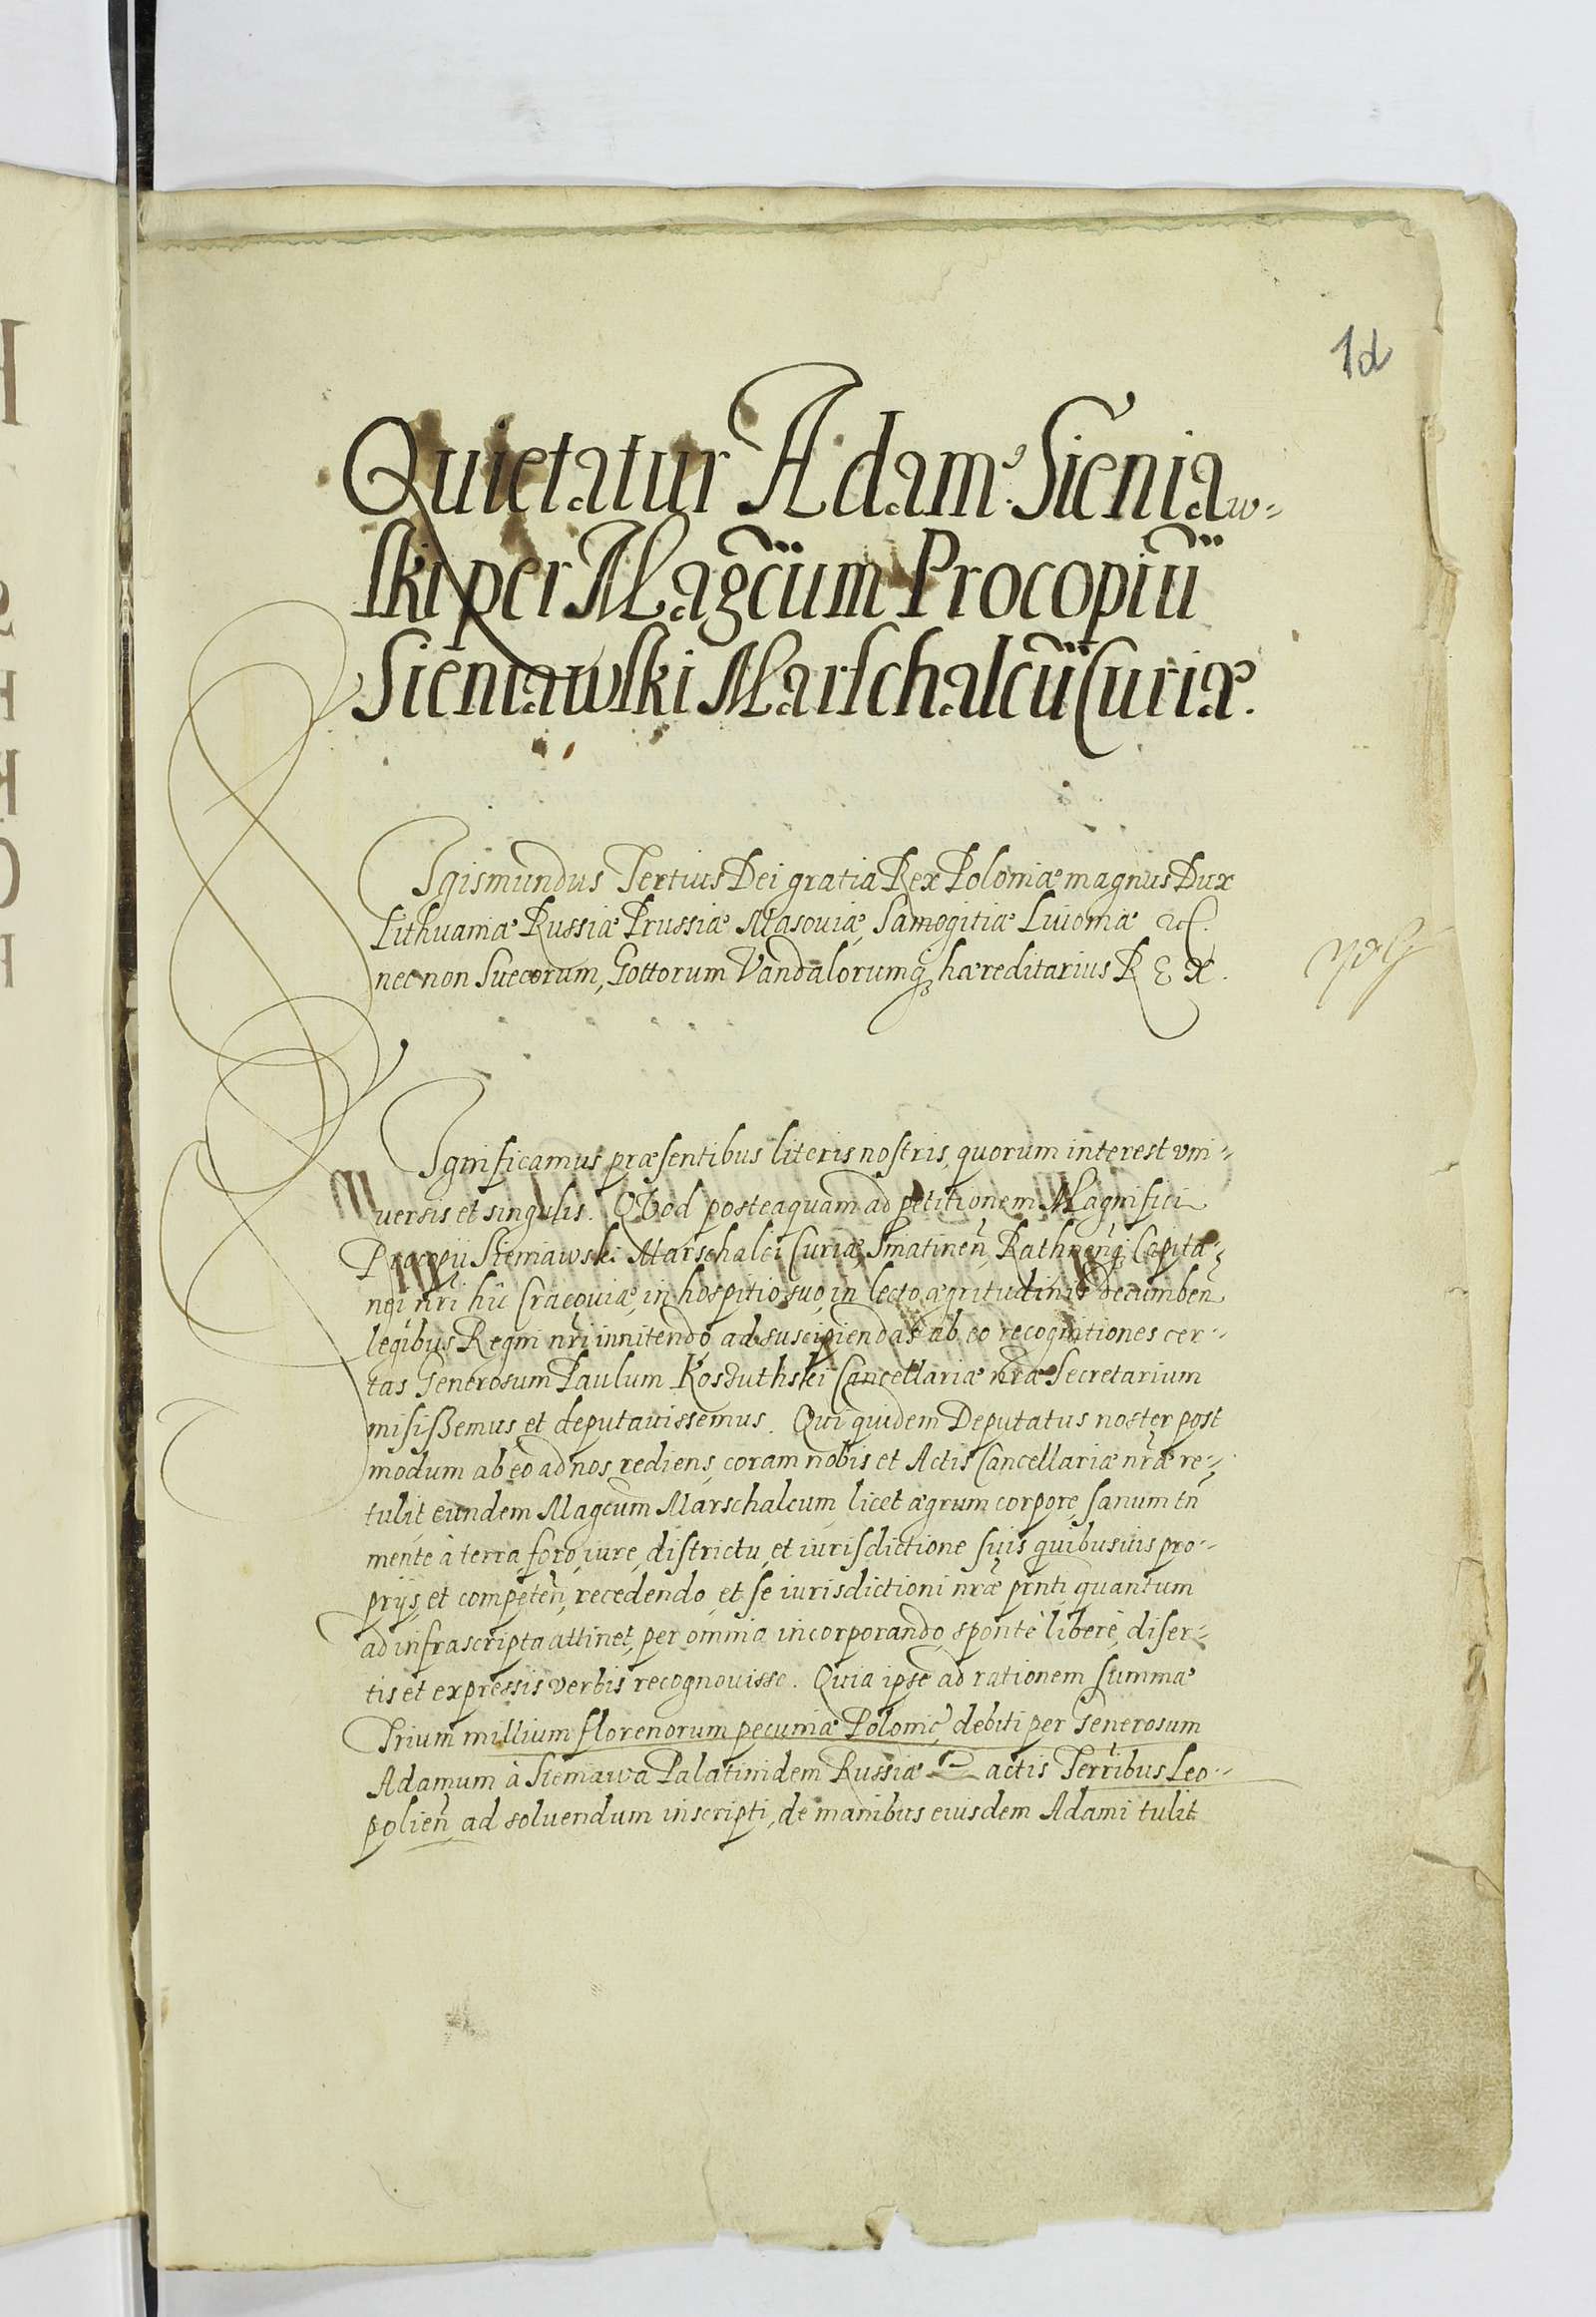 1d
Quietatur Adam Sieniaw-
ski per Magcum Procopiū
Sieniawski Marschalcū Curiæ.
Sgismundus Tertius Dei gratia Rex Poloniæ magnus Dux
Lithuaniæ Russiæ Prussiæ Masouiæ, Samogitiæ Liuoniæ etc.
necnon Suecorum, Gottorum Vandalorumq hæreditarius REX.
Sgnificamus præsentibus literis nostris, quorum interest vni-
uersis et singulis. QVod posteaquam ad petitionem Magnifici
Procopii Sieniawski Marschalci Curiæ, Sniatinen, Rathnenq Capita-
nei nri hic Cracouiæ, in hospitio suo, in lecto ægritudinis decumben
legibus Regni nri innitendo, ad suscipiendas ab eo recognitiones cer-
tas Generosum Paulum Cancellariæ nræ Secretarium
misissemus et deputauissemus. Qui quidem Deputatus noster post
modum ab eo ad nos rediens, coram nobis et Actis Cancellariæ nræ re-
tulit eundem Magcum Marschalcum, licet ægrum corpore, sanum tn
mente à terra, foro, iure, districtu, et iurisdictione suis quibusuis pro-
priis, et competen, recedendo, et se iurisdictioni nræ prnti, quantum
ad infrascripta attinet, per omnia incorporando, sponte libere, diser-
tis et expressis verbis recognouisse. Quia ipse ad rationem summæ
Trium millium florenorum pecuniæ Polonic, debiti per Generosum
Adamum à Sieniawa Palatinidem Russiæ actis Terribus Leo-
polien, ad soluendum inscripti, de manibus eiusdem Adami tulit